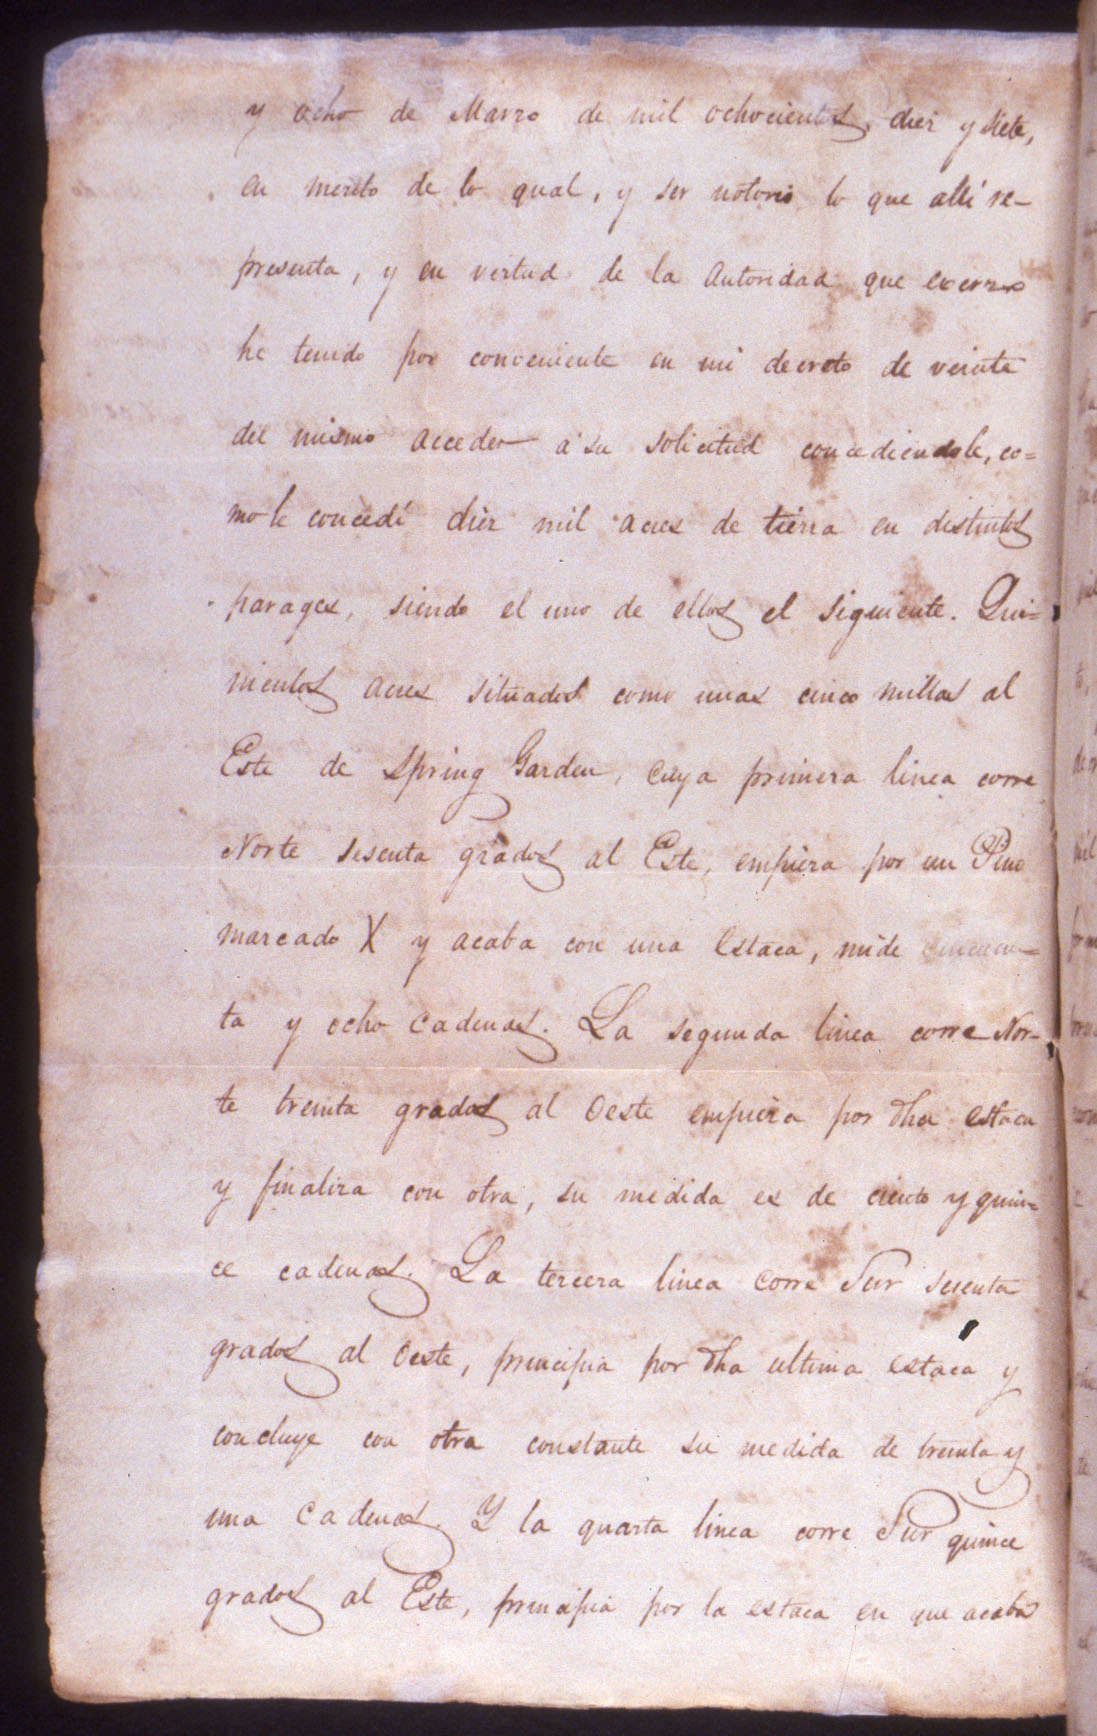 y ocho de Marzo de mil ochocientos, diez y siete,
en merito de lo qual, y ser notorio lo que alli re-
presenta, y en virtud de la autoridad que exerzo
he tenido por conveniente en mi decreto de veinte
del mismo acceder á su solicitud concediendole, co=
mo le concedí diez mil acres de tierra en distintos
parages, siendo el uno de ellos el siguiente. Qui-
nientos acres situados como unas cinco millas al
Este de Spring Garden, cuya primera linea corre
Norte sesenta grados al Este, empieza por un Pino
marcado X y acaba con una estaca, mide cincuen-
ta y ocho cadenas. La segunda linea corre Nor-
te treinta grados al Oeste empieza por dha estaca
y finaliza con otra, su medida es de ciento y quin=
ce cadenas. La tercera linea corre Sur sesenta
grados al Oeste, principia por dha ultima estaca y
concluye con otra constante su medida de treinta y
una cadenas. Y la quarta linea corre Sur quince
grados al Este, principia por la estaca en que acaba